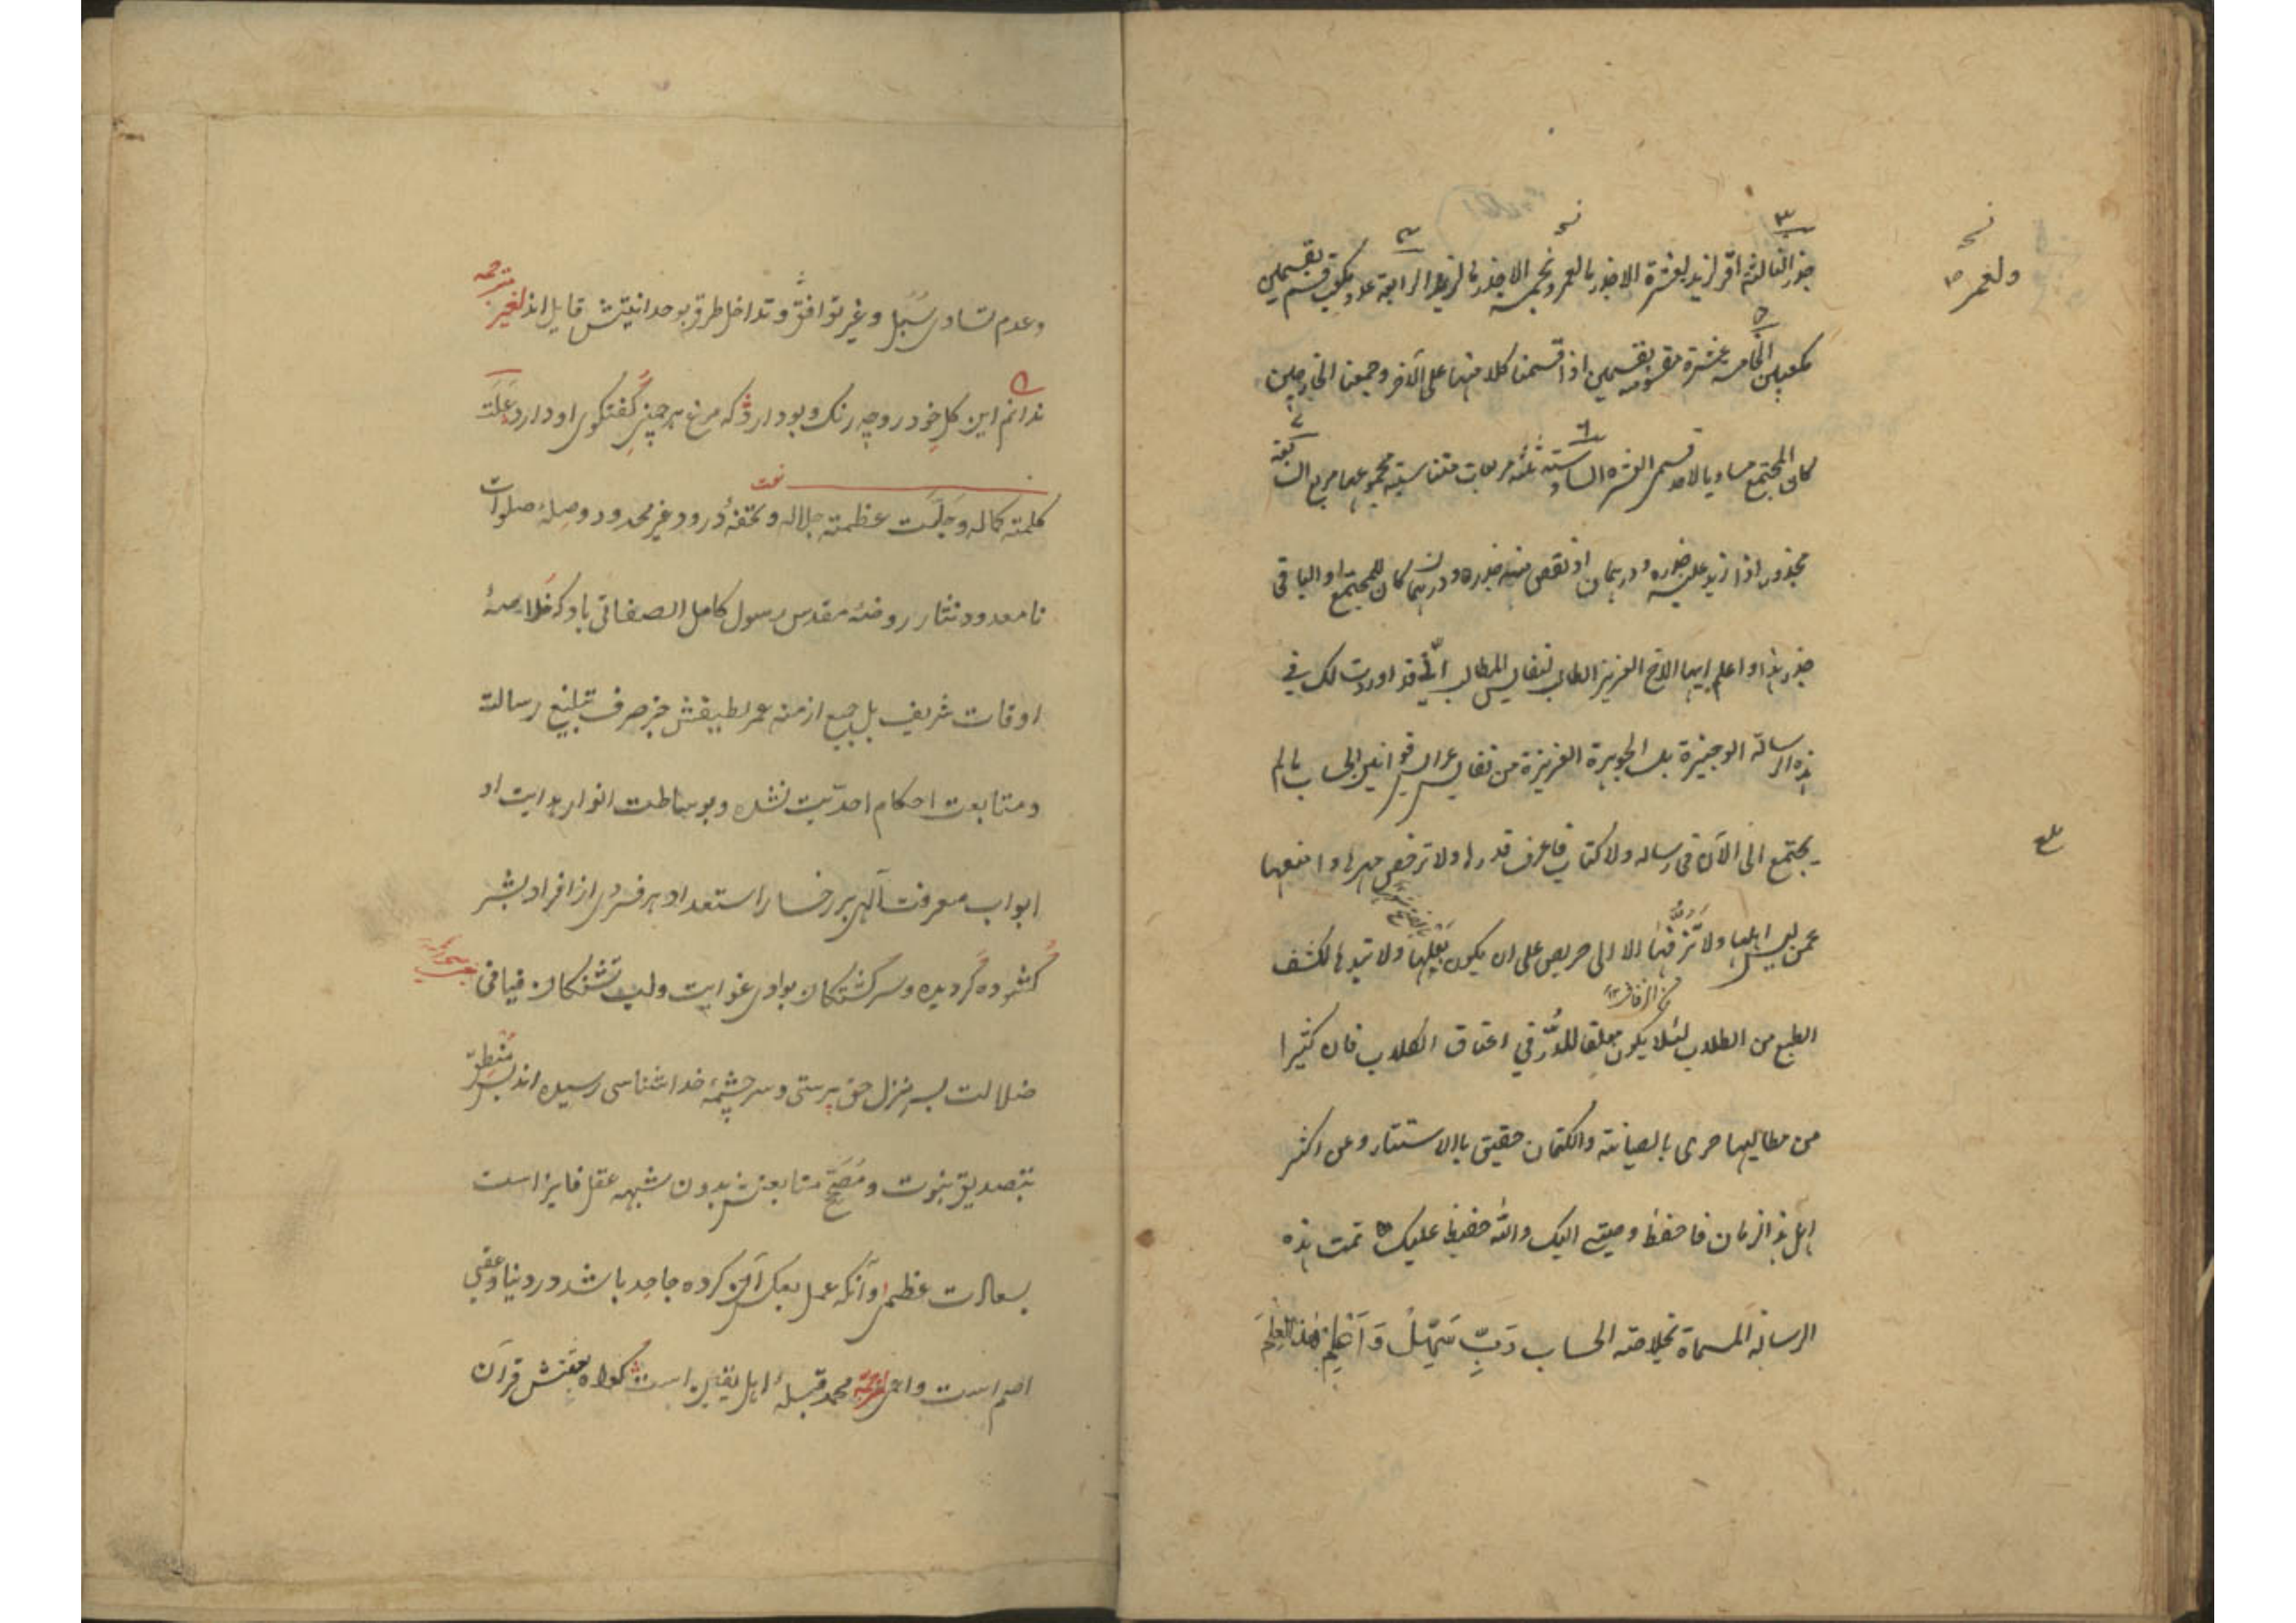 جذر الثالثة اقر لزيد بعشرة الا جذر ما لعمرو ولعمرو بخمسة الا جذر ما لزيد الرابعة عدد مكعب قسم بقسمين
مكعبين الخامسة عشرة مقسومة بقسمين اذا قسمنا كلا منهما على الآخر وجمعنا الخارجين
كان المجتمع مساويا لاحد قسمي العشرة السادسة ثلثة مربعات متناسبة مجموعها مربع السابعة
مجذور اذا زيد عليه جذره ودرهمان او نقص منه جذره ودرهمان كان للمجتمع او الباقي
جذر هذا واعلم ايها الاخ العزيز الطالب لنفايس المطالب انّي قد اوردت لك في
هذه الرسالة الوجيزة بل الجوهرة العزيزة من نفايس عرايس قوانين الحساب ما لم
يجتمع الى الآن في رسالة ولا كتاب فاعرف قدرها ولا ترخص مهرها وامنعها
عمن ليس اهلها ولا تزفها الا الى حريص على ان يكون بعلها ولا تبدها لكثيف
الطبع من الطلاب لئلا يكون معلقا للدّرّ في اعناق الكلاب فان كثيرا
من مطالبها حرى بالصيانة والكتمان حقيق بالاستتار وعن اكثر
اهل هذا الزمان فاحفظ وصيتي اليك والله حفيظ عليك تمت هذه
الرسالة المسماة بخلاصة الحساب رَبِّ سَهِّلْ
وعدم تساوى سُبُل وغير توافق وتداخل طرق بوحدانيتش قايل اند لغيره
ندانم اين كل خود رو چه رنك وبو دارد كه مرغ هر چمنى كفتكوى او دارد علت
نعت
كلمته كماله وجلّت عظمته جلاله وتحفهٔ درود غير محدود وصلهٔ صلوات
نامعدود نثار روضهٔ مقدس رسول كامل الصفاتى باد كه خلاصهٔ
اوقات شريف بل جميع ازمنه عمر لطيفش جز صرف تبليغ رسالت
ومتابعت احكام احدّيت نشده وبوساطت انوار هدايت او
ابواب معرفت آلهى بر رخسار استعداد هر فردى از افراد بشر
كشوده كرديده وسركشتكان بوادى غوايت ولب تشنكان فيافى
ضلالت بسر منزل حق پرستى وسر چشمهٔ خداشناسى رسيده اند
بتصديق نبوت و متابعتش بدون شبهه عقل فايز است
بسعادت عظمى وآنكه عمل بعكس آن كرده جاحد باشد در دنيا وعقبى
اصم است واعمى محمد قبلهٔ اهل يقين است كواه قرآن